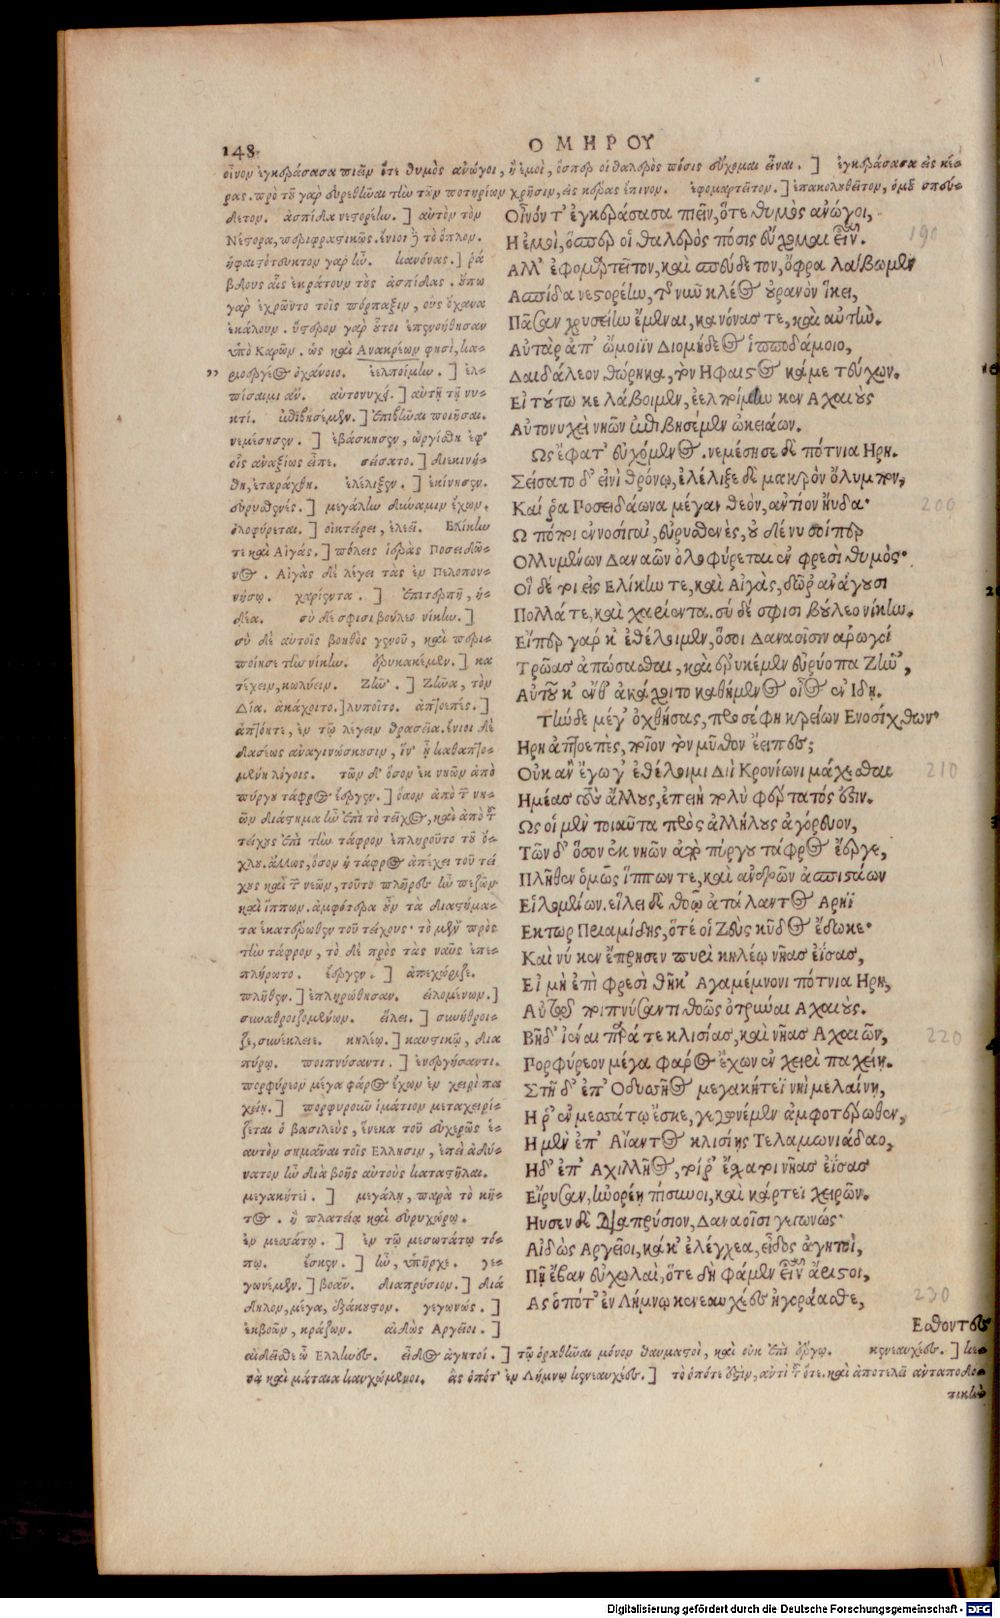 148 ΟΜΗΡΟΥ
οἶνον ἐγκεράσασα πιεῖν ὅτε θυμὸς ἀνώγοι, ἢ ἐμοὶ, ὅσπερ οἱ θαλερὸς πόσις εὔχομαι εἶναι. ] ἐγκεράσασα εἰς κέ-
ρας. πρὸ τοῦ γὰρ εὑρεθῆναι τὴν τῶν ποτηρίων χρῆσιν, εἰς κέρας ἔπινον. ἐφομαρτεῖτον. ] ἐπακολουθεῖτον, ὁμοῦ σπεύ-
δετον. ἀσπίδα νεστορέην. ] αὐτὸν τὸν
Νέστορα, περιφραστικῶς. ἔνιοι ἢ τὸ ὅπλον.
ἡφαιστότευκτον γὰρ ἦν. κανόνας. ] ῥά
βδους αἷς ἐκράτουν τὰς ἀσπίδας. οὔπω
γὰρ ἐχρῶντο τοῖς πόρπαξιν, οὓς ὄχανα
ἐκάλουν. ὕστερον γὰρ οὗτοι ἐπενοήθησαν
ὑπὸ Καρῶν. ὡς καὶ Ἀνακρέων φησὶ, κα-
„ ριοεργέος ὀχάνοιο. ἐελποίμην. ] ἐλ-
πίσαιμι ἄν. αὐτονυχί. ] αὐτῇ τῇ νυ-
κτί. ἐπιβησέμεν. ] ἐπιβῆναι ποιῆσαι.
νεμέσησεν. ] ἐβάσκηνεν, ὠργίσθη ἐφ'
οἷς ἀναξίως εἶπε. σείσατο. ] διεκινή-
θη, ἐταράχθη. ἐλέλιξεν. ] ἐκίνησεν.
εὐρυσθενές. ] μεγάλην δύναμιν ἔχων.
ὀλοφύρεται. ] οἰκτείρει, ἐλεεῖ. Ἑλίκην
τε καὶ Αἰγάς. ] πόλεις ἱερὰς Ποσειδῶ-
νος. Αἰγὰς δὲ λέγει τὰς ἐν Πελοπον-
νήσῳ. χαρίεντα. ] ἐπιτερπῆ, ἡ-
δέα. σὺ δέ σφισι βούλεο νίκην. ]
σὺ δὲ αὐτοῖς βοηθὸς γενοῦ, καὶ περι-
ποίησε τὴν νίκην. ἐρυκακέμεν. ] κα
τέχειν, κωλύειν. Ζῆν'. ] Ζῆνα, τὸν
Δία. ἀκάχοιτο. ] λυποῖτο. ἁπτοεπές. ]
ἄπτόητε, ἐν τῷ λέγειν θρασεῖα. ἔνιοι δὲ
δασέως ἀναγινώσκουσιν, ἵν' ᾖ καθαπτο-
μένη λόγοις. τῶν δ' ὅσον ἐκ νηῶν ἀπὸ
πύργου τάφρος ἔεργεν. ] ὅσον ἀπὸ τῶν νη-
ῶν διάστημα ἦν ἐπὶ τὸ τεῖχος, καὶ ἀπὸ τοῦ
τείχους ἐπὶ τὴν τάφρον ἐπληροῦτο τοῦ ὄ-
χλου. ἄλλως, ὅσον ἡ τάφρος ἀπέχει τοῦ τεί
χους καὶ τῶν νεῶν, τοῦτο πλῆρες ἦν πεζῶν
καὶ ἵππων. ἀμφότερα οὖν τὰ διαστήμα-
τα ἑκατέρωθεν τοῦ τείχους· τὸ μὲν πρὸς
τὴν τάφρον, τὸ δὲ πρὸς τὰς ναῦς ἐπε-
πλήρωτο. ἔεργεν. ] ἀπεχώριζε.
πλῆθεν. ] ἐπληρώθησαν. εἰλομένων. ]
συναθροιζομένων. εἴλει. ] συνήθροι-
ζε, συνέκλειε. κηλέῳ. ] καυστικῷ, δια
πύρῳ. ποιπνύσαντι. ] ἐνεργήσαντι.
πορφύρεον μέγα φάρος ἔχων ἐν χειρὶ πα
χείῃ. ] πορφυροῦν ἱμάτιον μεταχειρί-
ζεται ὁ βασιλεὺς, ἕνεκα τοῦ εὐχερῶς ἑ-
αυτὸν σημᾶναι τοῖς Ἕλλησιν, ἐπεὶ ἀδύ-
νατον ἦν διὰ βοῆς αὐτοὺς καταστεῖλαι.
μεγακήτεϊ. ] μεγάλῃ, παρὰ τὸ κῆ-
τος. ἢ πλατείᾳ καὶ εὐρυχώρῳ.
ἐν μεσσάτῳ. ] ἐν τῷ μεσωτάτῳ τό-
πῳ. ἔσκεν. ] ἦν, ὑπῆρχε. γε-
γωνέμεν. ] βοᾶν. διαπρύσιον. ] διά
δηλον, μέγα, ἐξάκουστον. γεγωνώς. ]
ἐκβοῶν, κράζων. αἰδὼς Ἀργεῖοι. ]
αἰδεῖσθε ὦ Ἕλληνες. εἶδος ἀγητοί. ] τῷ ὁρᾶσθαι μόνον θαυμαστοὶ, καὶ οὐκ ἐπὶ ἔργῳ. κενεαυχέες. ] κε-
νὰ καὶ μάταια καυχώμενοι. ἃς ὁπότ' ἐν Λήμνῳ κενεαυχέες. ] τὸ ὁπότε ἐστὶν, ἀντὶ τοῦ ὅτε. καὶ ἀποτελεῖ ἀνταποδο-
τικὴν
Οἶνόν τ' ἐγκεράσασα πιεῖν, ὅτε θυμὸς ἀνώγοι,
Ἢ ἐμοὶ, ὅσπερ οἱ θαλερὸς πόσις εὔχομαι εἶναι. 190
Ἀλλ' ἐφομαρτεῖτον, καὶ σπεύδετον, ὄφρα λάβωμεν
Ἀσπίδα νεστορέην, τῆς νῦν κλέος οὐρανὸν ἵκει,
Πᾶσαν χρυσείην ἔμεναι, κανόνας τε, καὶ αὐτήν.
Αὐτὰρ ἀπ' ὤμοιϊν Διομήδεος ἱπποδάμοιο,
Δαιδάλεον θώρηκα, τὸν Ἥφαιστος κάμε τεύχων.
Εἰ τούτω κε λάβοιμεν, ἐελποίμην κεν Ἀχαιοὺς
Αὐτονυχεὶ νηῶν ἐπιβησέμεν ὠκειάων.
Ὣς ἔφατ' εὐχόμενος. νεμέσησε δὲ πότνια Ἥρη.
Σείσατο δ' εἰνὶ θρόνῳ, ἐλέλιξε δὲ μακρὸν ὄλυμπον,
Καί ῥα Ποσειδάωνα μέγαν θεὸν, ἀντίον ηὔδα· 200
Ὢ πόποι ἐννοσίγαι', εὐρυσθενὲς, οὐδέ νυ σοίπερ
Ὀλλυμένων Δαναῶν ὀλοφύρεται ἐν φρεσὶ θυμός·
Οἳ δέ τοι εἰς Ἑλίκην τε, καὶ Αἰγὰς, δῶρ' ἀνάγουσι
Πολλά τε, καὶ χαρίεντα. σὺ δέ σφισι βούλεο νίκην.
Εἴπερ γάρ κ' ἐθέλοιμεν, ὅσοι Δαναοῖσιν ἀρωγοὶ
Τρῶας ἀπώσασθαι, καὶ ἐρυκέμεν εὐρύοπα Ζῆν',
Αὐτοῦ κ' ἔνθ' ἀκάχοιτο καθήμενος οἶος ἐν Ἴδῃ.
Τὴν δὲ μέγ' ὀχθήσας, προσέφη κρείων Ἐνοσίχθων·
Ἥρη ἁπτοεπὲς, ποῖον τὸν μῦθον ἔειπες;
Οὐκ ἂν ἔγωγ' ἐθέλοιμι Διῒ Κρονίωνι μάχεσθαι 210
Ἡμέας τοὺς ἄλλους, ἐπειὴ πολὺ φέρτατός ἐστιν.
Ὣς οἱ μὲν τοιαῦτα πρὸς ἀλλήλους ἀγόρευον,
Τῶν δ' ὅσον ἐκ νηῶν ἀπὸ πύργου τάφρος ἔεργε,
Πλῆθεν ὁμῶς ἵππων τε, καὶ ἀνδρῶν ἀσπιστάων
Εἰλομένων. εἴλει δὲ θοῷ ἀτάλαντος Ἄρηϊ
Ἕκτωρ Πριαμίδης, ὅτέ οἱ Ζεὺς κῦδος ἔδωκε·
Καὶ νύ κεν ἔπρησεν πυρὶ κηλέῳ νῆας ἐΐσας,
Εἰ μὴ ἐπὶ φρεσὶ θῆκ' Ἀγαμέμνονι πότνια Ἥρη,
Αὐτῷ ποιπνύσαντι θοῶς ὀτρῦναι Ἀχαιούς.
Βῆ δ' ἰέναι παρά τε κλισίας, καὶ νῆας Ἀχαιῶν, 220
Πορφύρεον μέγα φάρος ἔχων ἐν χειρὶ παχείῃ.
Στῆ δ' ἐπ' Ὀδυσσῆος μεγακήτεϊ νηῒ μελαίνῃ,
Ἥ ῥ' ἐν μεσσάτῳ ἔσκε, γεγωνέμεν ἀμφοτέρωθεν,
Ἢ μὲν ἐπ' Αἴαντος κλισίης Τελαμωνιάδαο,
Ἠδ' ἐπ' Ἀχιλλῆος, τοί ῥ' ἔσχατοι νῆας ἐΐσας
Εἴρυσαν, ἠνορέῃ πίσυνοι, καὶ κάρτεϊ χειρῶν.
Ἤυσεν δὲ διαπρύσιον, Δαναοῖσι γεγωνώς·
Αἰδὼς Ἀργεῖοι, κάκ' ἐλέγχεα, εἶδος ἀγητοὶ,
Πῆ ἔβαν εὐχωλαὶ, ὅτε δὴ φάμεν εἶναι ἄριστοι,
Ἃς ὁπότ' ἐν Λήμνῳ κενεαυχέες ἠγοράασθε, 230
Ἔσθοντες
Digitalisierung gefördert durch die Deutsche Forschungsgemeinschaft - DFG